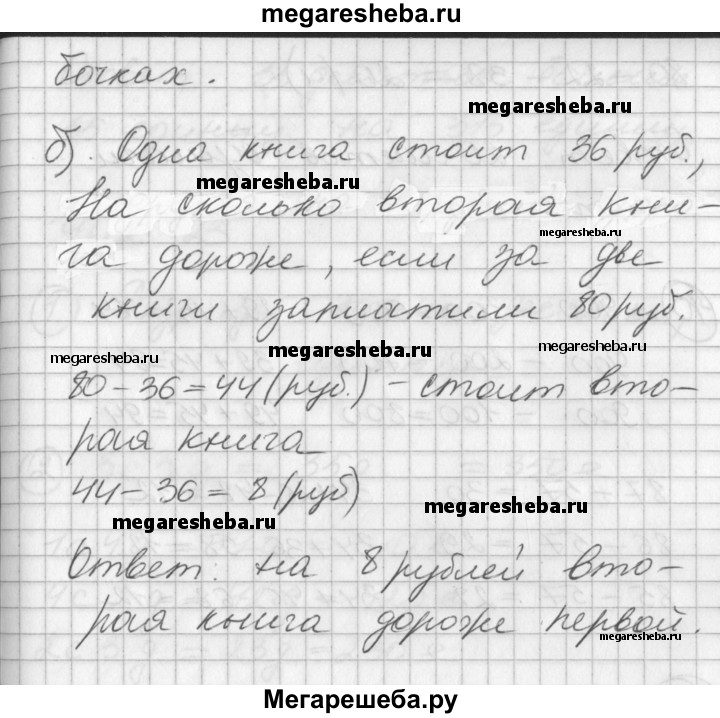 megaresheba.ru
бочках.
megaresheba.ru
б). Одна книга стоит 36 руб.,
megaresheba.ru
На сколько вторая кни-
megaresheba.ru
га дороже, если за две
книги заплатили 80 руб.
megaresheba.ru
megaresheba.ru
80-36=44(руб.) - стоит вто-
рая книга
44-36=8(руб)
megaresheba.ru
megaresheba.ru
Ответ: на 8 рублей вто-
рая книга дороже первой.
megaresheba.ru
Мегарешеба.ру